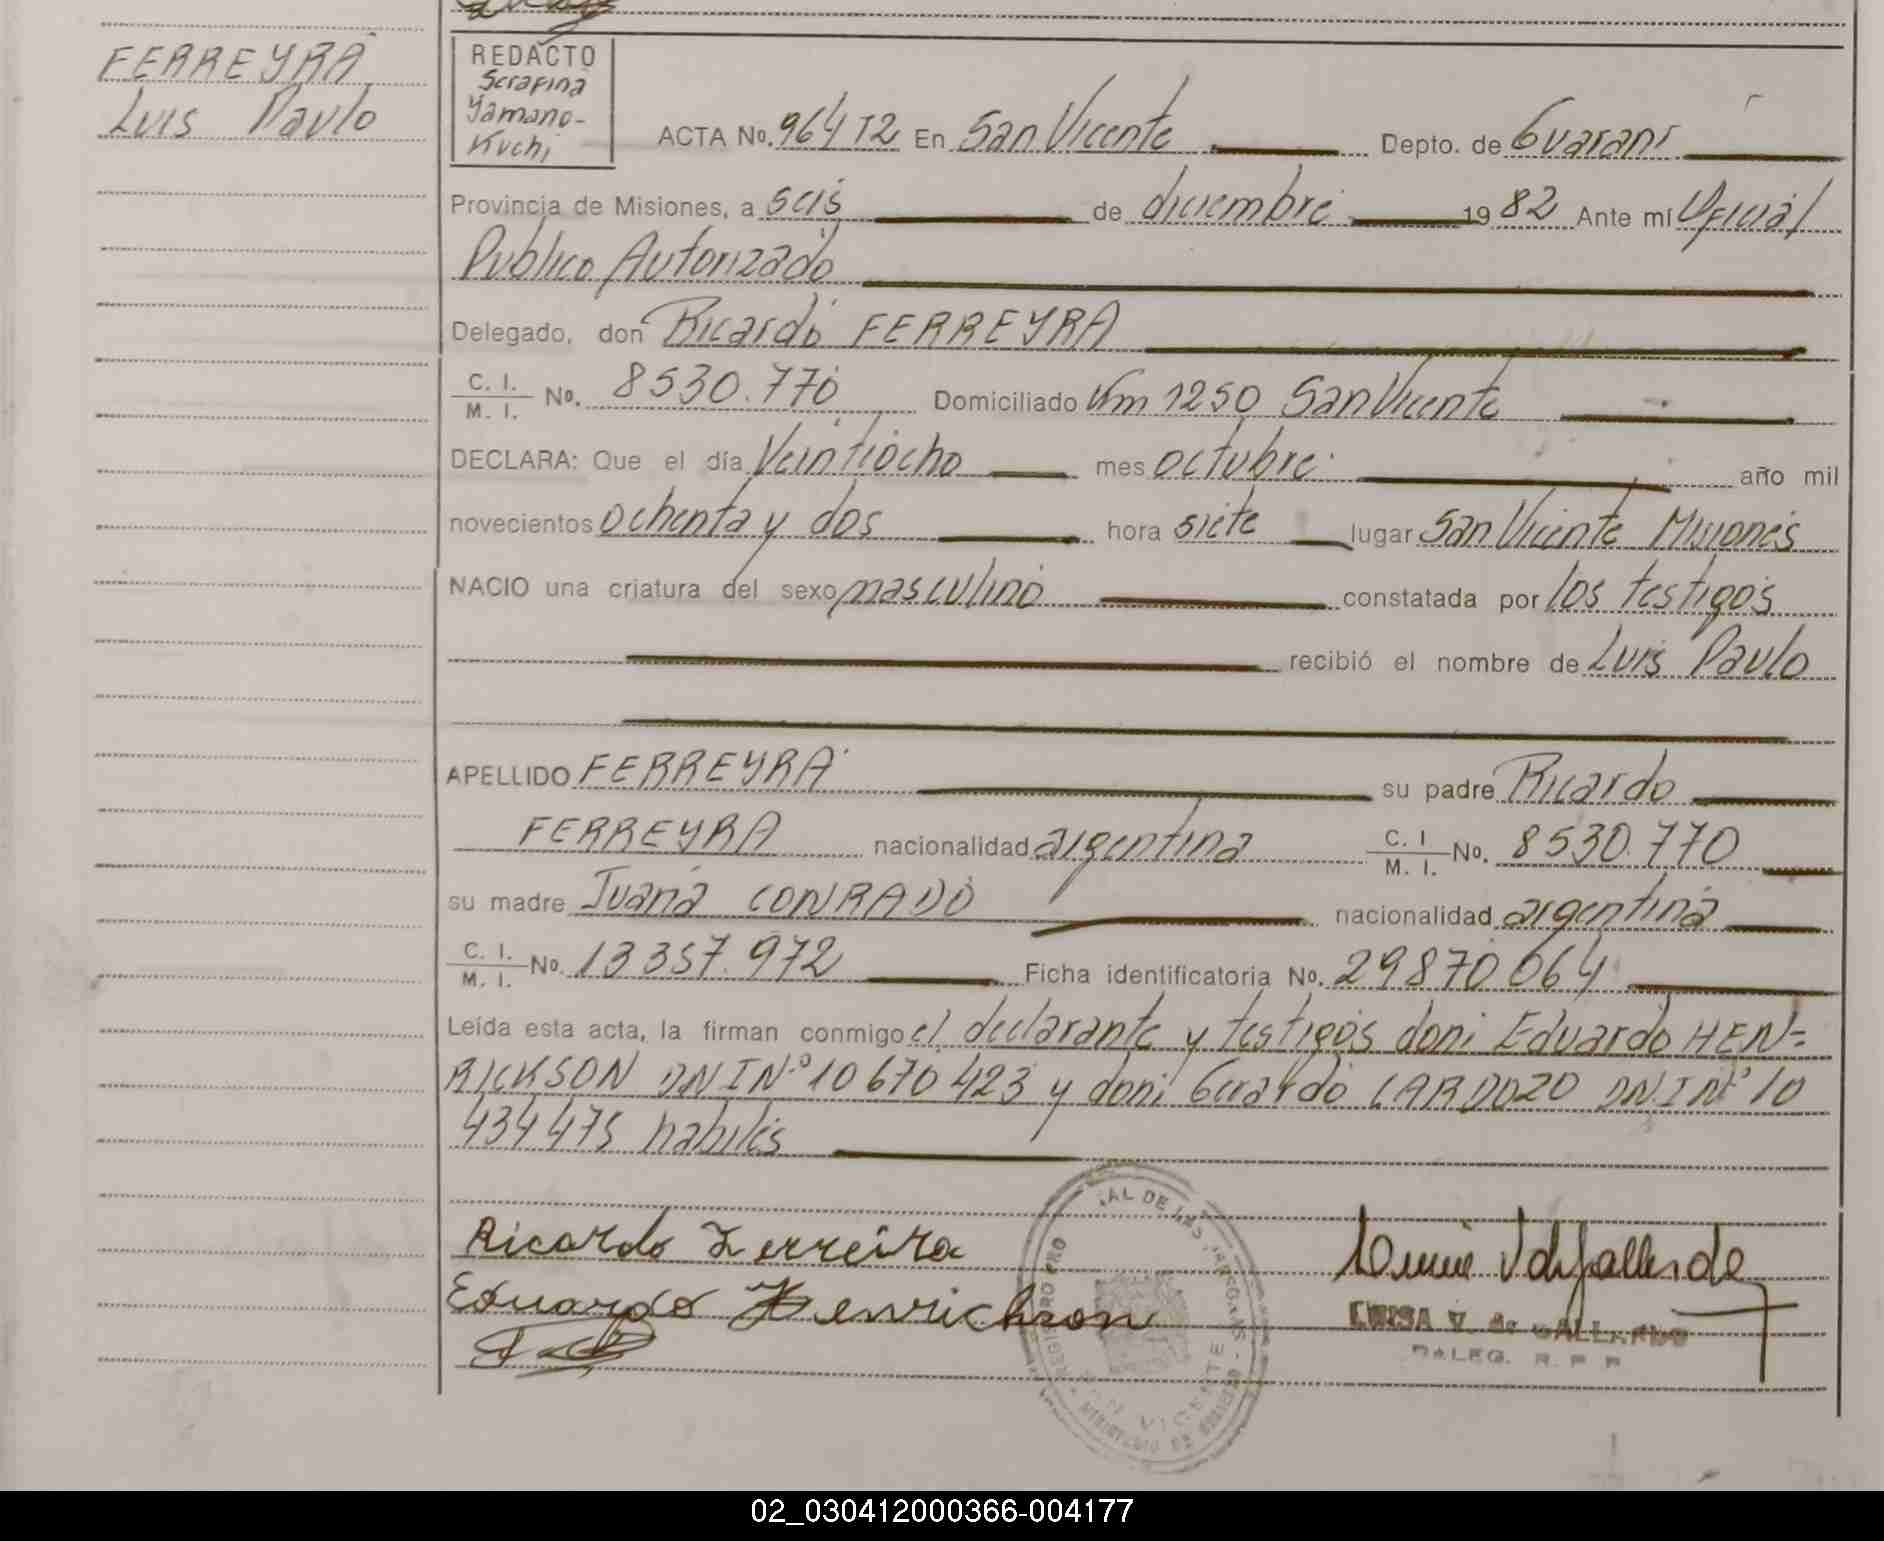 FERREYRA
Luis Paulo
REDACTO
Serafina
Yamano-
Kuchi
ACTA No. 964 T2 En San Vicente Depto. de Guaraní
Provincia de Misiones, a seis de diciembre 1982 Ante mí Oficial
Publico Autorizado
Delegado, don Ricardo FERREYRA
C. I.
M. I. No. 8530.770 Domiciliado Km 1250 San Vicente
DECLARA: Que el día Veintiocho mes octubre año mil
novecientos ochenta y dos hora siete lugar San Vicente Misiones
NACIO una criatura del sexo masculino constatada por los testigos
recibió el nombre de Luis Paulo
APELLIDO FERREYRA su padre Ricardo
FERREYRA nacionalidad argentina C. I
M. I. No. 8530.770
su madre Juana CONRADO nacionalidad argentina
C. I.
M. I. No. 13357.972 Ficha identificatoria No. 29870064
Leída esta acta, la firman conmigo el declarante y testigos doni Eduardo HEN-
RICKSON DNI Nº 10670423 y doni Gerardo CARDOZO DNI Nº 10
434475 habiles
Ricardo Ferreira
Eduardo Henrickson
LUISA V. de GALLARDO
DALEG. R. P. P.
SAN VICENTE
02_030412000366-004177